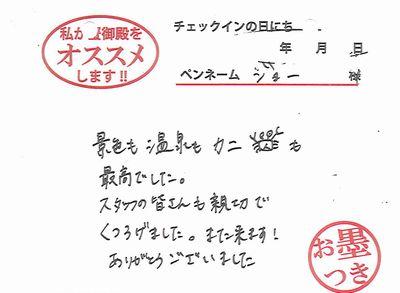 私が 御殿を
オススメ
します!!
チェックインの日にち
年 月 日
ペンネーム ジョー 様
景色も温泉もカニ も
最高でした。
スタッフの皆さんも親切で
くつろげました。また来ます!
ありがとうございました
お墨
つき